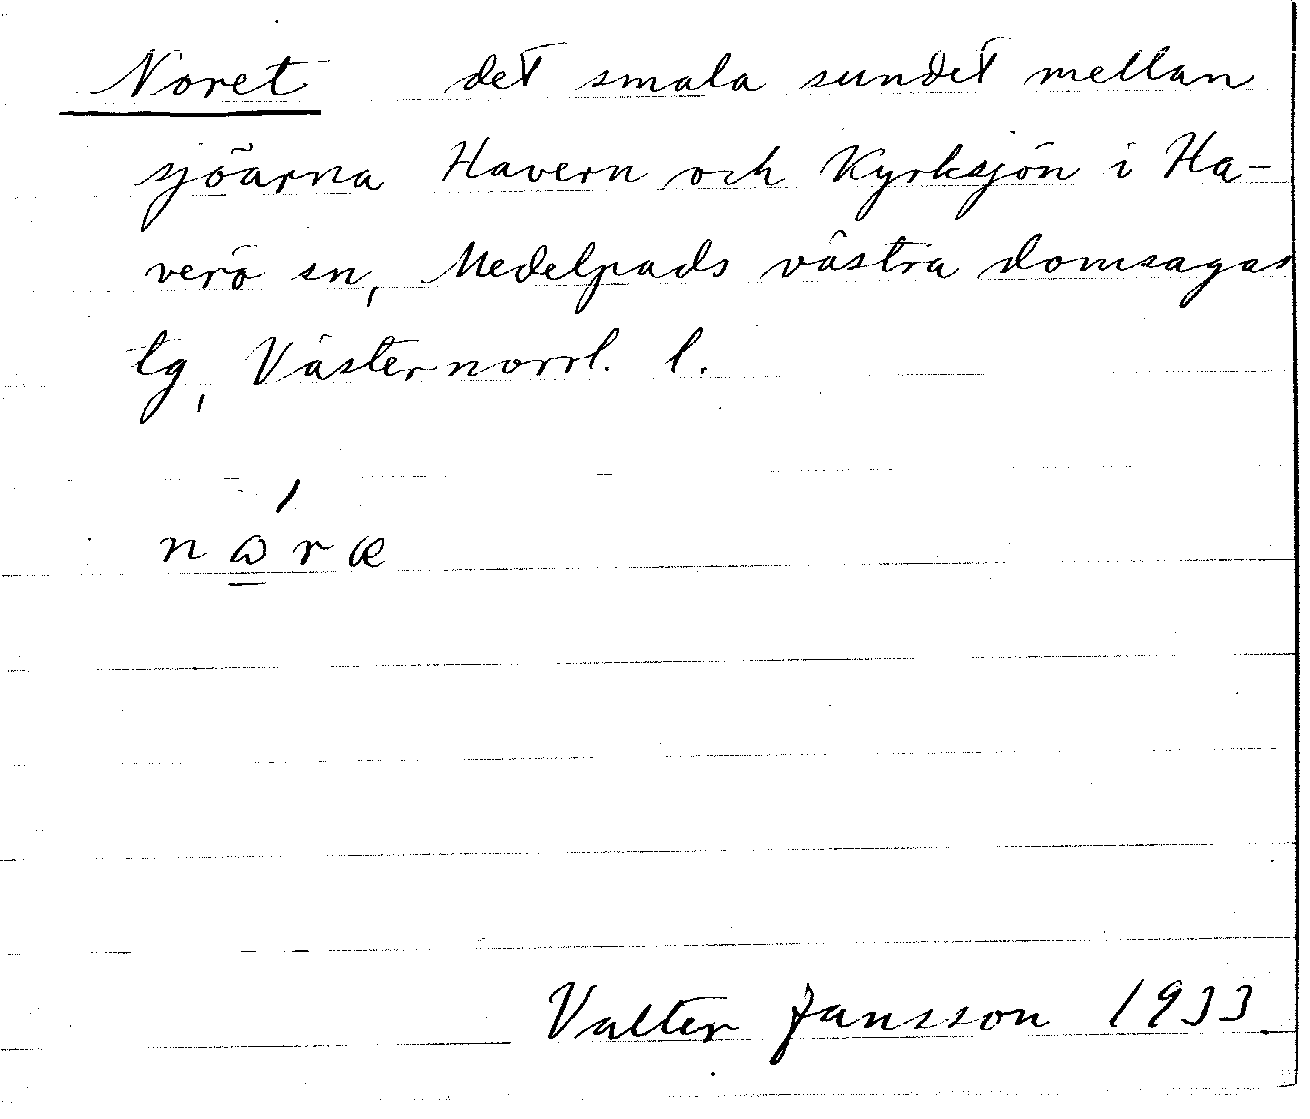 Noret det smala sundet mellan
sjöarna Havern och Kyrksjön i Ha-
verö sn, Medelpads västra domsagas
tg, Västernorrl. l.
Valter Jansson 1933.